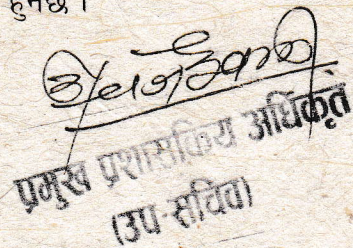 हुनेछ।
प्रमुख प्रशासकिय अधिकृत
(उप-सचिव)